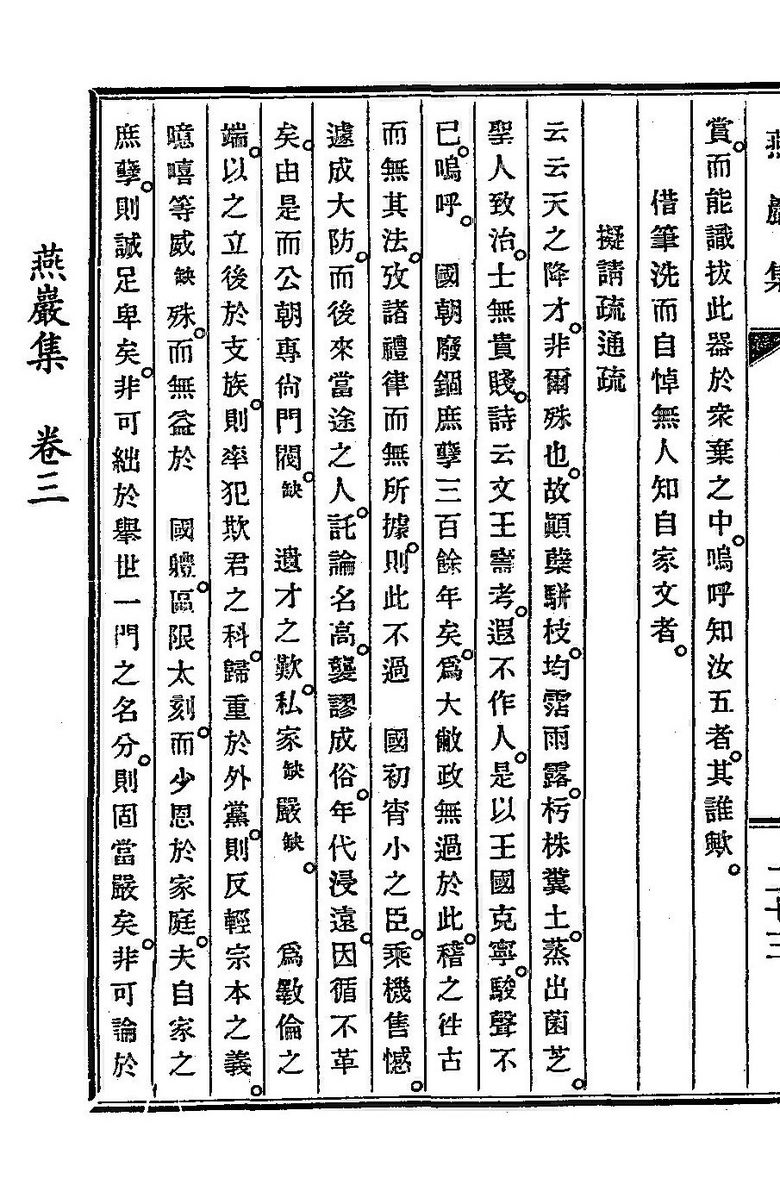 燕巖集
二十三
賞。而能識拔此器於衆棄之中。嗚呼知汝五者。其誰歟。
借筆洗而自悼無人知自家文者。
擬請疏通疏
云云天之降才。非爾殊也。故顚蘖騈枝。均霑雨露。朽株糞土。蒸出菌芝。
聖人致治。士無貴賤。詩云文王壽考。遐不作人。是以王國克寧。駿聲不
已。嗚呼。 國朝廢錮庶孽三百餘年矣。爲大敝政無過於此。稽之徃古
而無其法。攷諸禮律而無所據。則此不過 國初宵小之臣。乘機售憾。
遽成大防。而後來當途之人。託論名高。襲謬成俗。年代浸遠。因循不革
矣。由是而公朝專尙門閥。缺 遺才之歎。私家缺嚴缺。 爲斁倫之
端。以之立後於支族。則率犯欺君之科。歸重於外黨。則反輕宗本之義。
噫嘻等威缺殊。而無益於 國軆。區限太刻。而少恩於家庭。夫自家之
庶孽。則誠足卑矣。非可絀於擧世一門之名分。則固當嚴矣。非可論於
燕巖集 卷三